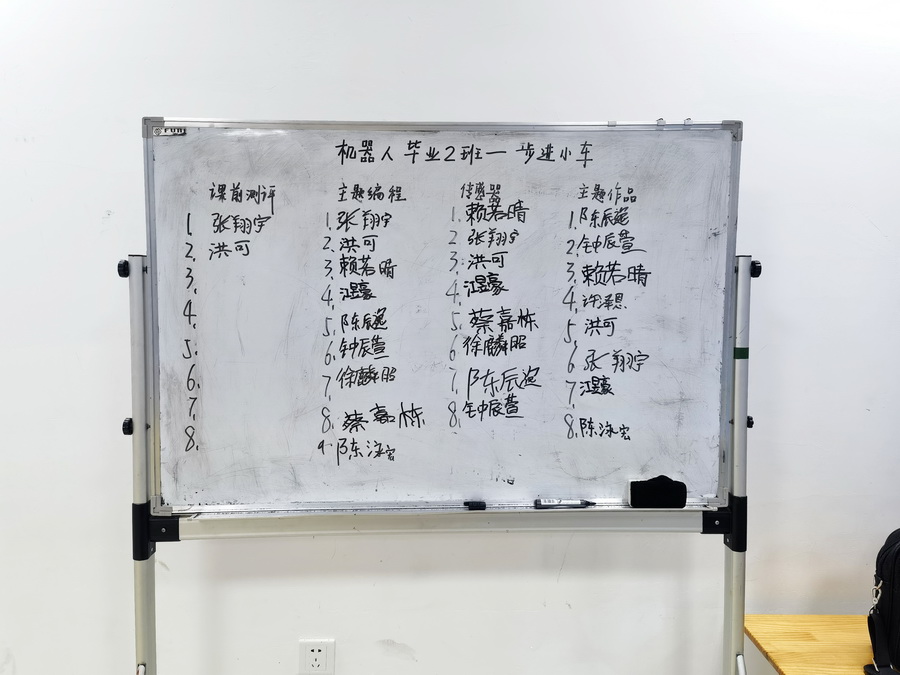 机器人毕业2班一步进小车
课前测评
1 张翔宇
2. 洪可
3.
4.
5.
6.
7.
8.
主题编程
1. 张翔宇
2. 洪可
3. 赖若晴
4. 江昱豪
5. 陈辰
6. 钟辰萱
7. 徐麟昭
8. 蔡嘉栋
9. 陈泳宏
传感器
1. 赖若晴
2 张翔宇
3. 洪可
4. 江昱豪
5. 蔡嘉栋
6 徐麟昭
7. 陈辰
8. 钟辰萱
主题作品
1. 陈辰
2. 钟辰萱
3. 赖若晴
4. 许泽恩
5. 洪可
6. 张翔宇
7 江昱豪
8. 陈泳宏